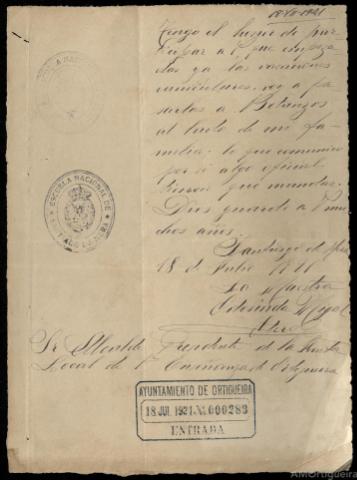 18-VII-1921
Tengo el honor de par-
ticipar a V. que empeza-
das ya las vacaciones
caniculares, voy a pa-
sarlas a Betanzos
al lado de mi fa-
milia; lo que comunico
por si algo oficial
tienen que mandar.
Dios guarde a V. mu-
chos años.
Santiago de
18 de Julio 1921
La Maestra
Sr. Alcalde Presidente de la Junta
Local de 1ª Enseñanza de Ortigueira
ESCUELA NACIONAL DE
AYUNTAMIENTO DE ORTIGUEIRA
18 JUL 1921 Nº 000283
ENTRADA
AMOrtigueira